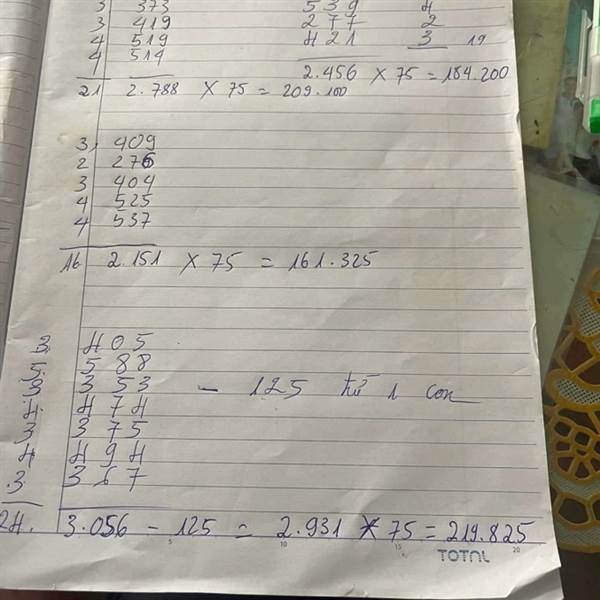 3 373 539 4
3 419 277 2
4 519 421 3 19
4 514
2.456 x 75 = 184.200
21 2.788 x 75 = 209.100
3 409
2 276
3 404
4 525
4 537
16 2.151 x 75 = 161.325
3 405
5 588
3 353 - 125 trừ 1 con
4 474
3 375
4 494
3 367
24. 3.056 - 125 = 2.931 x 75 = 219.825
5 10 15 20
TOTAL